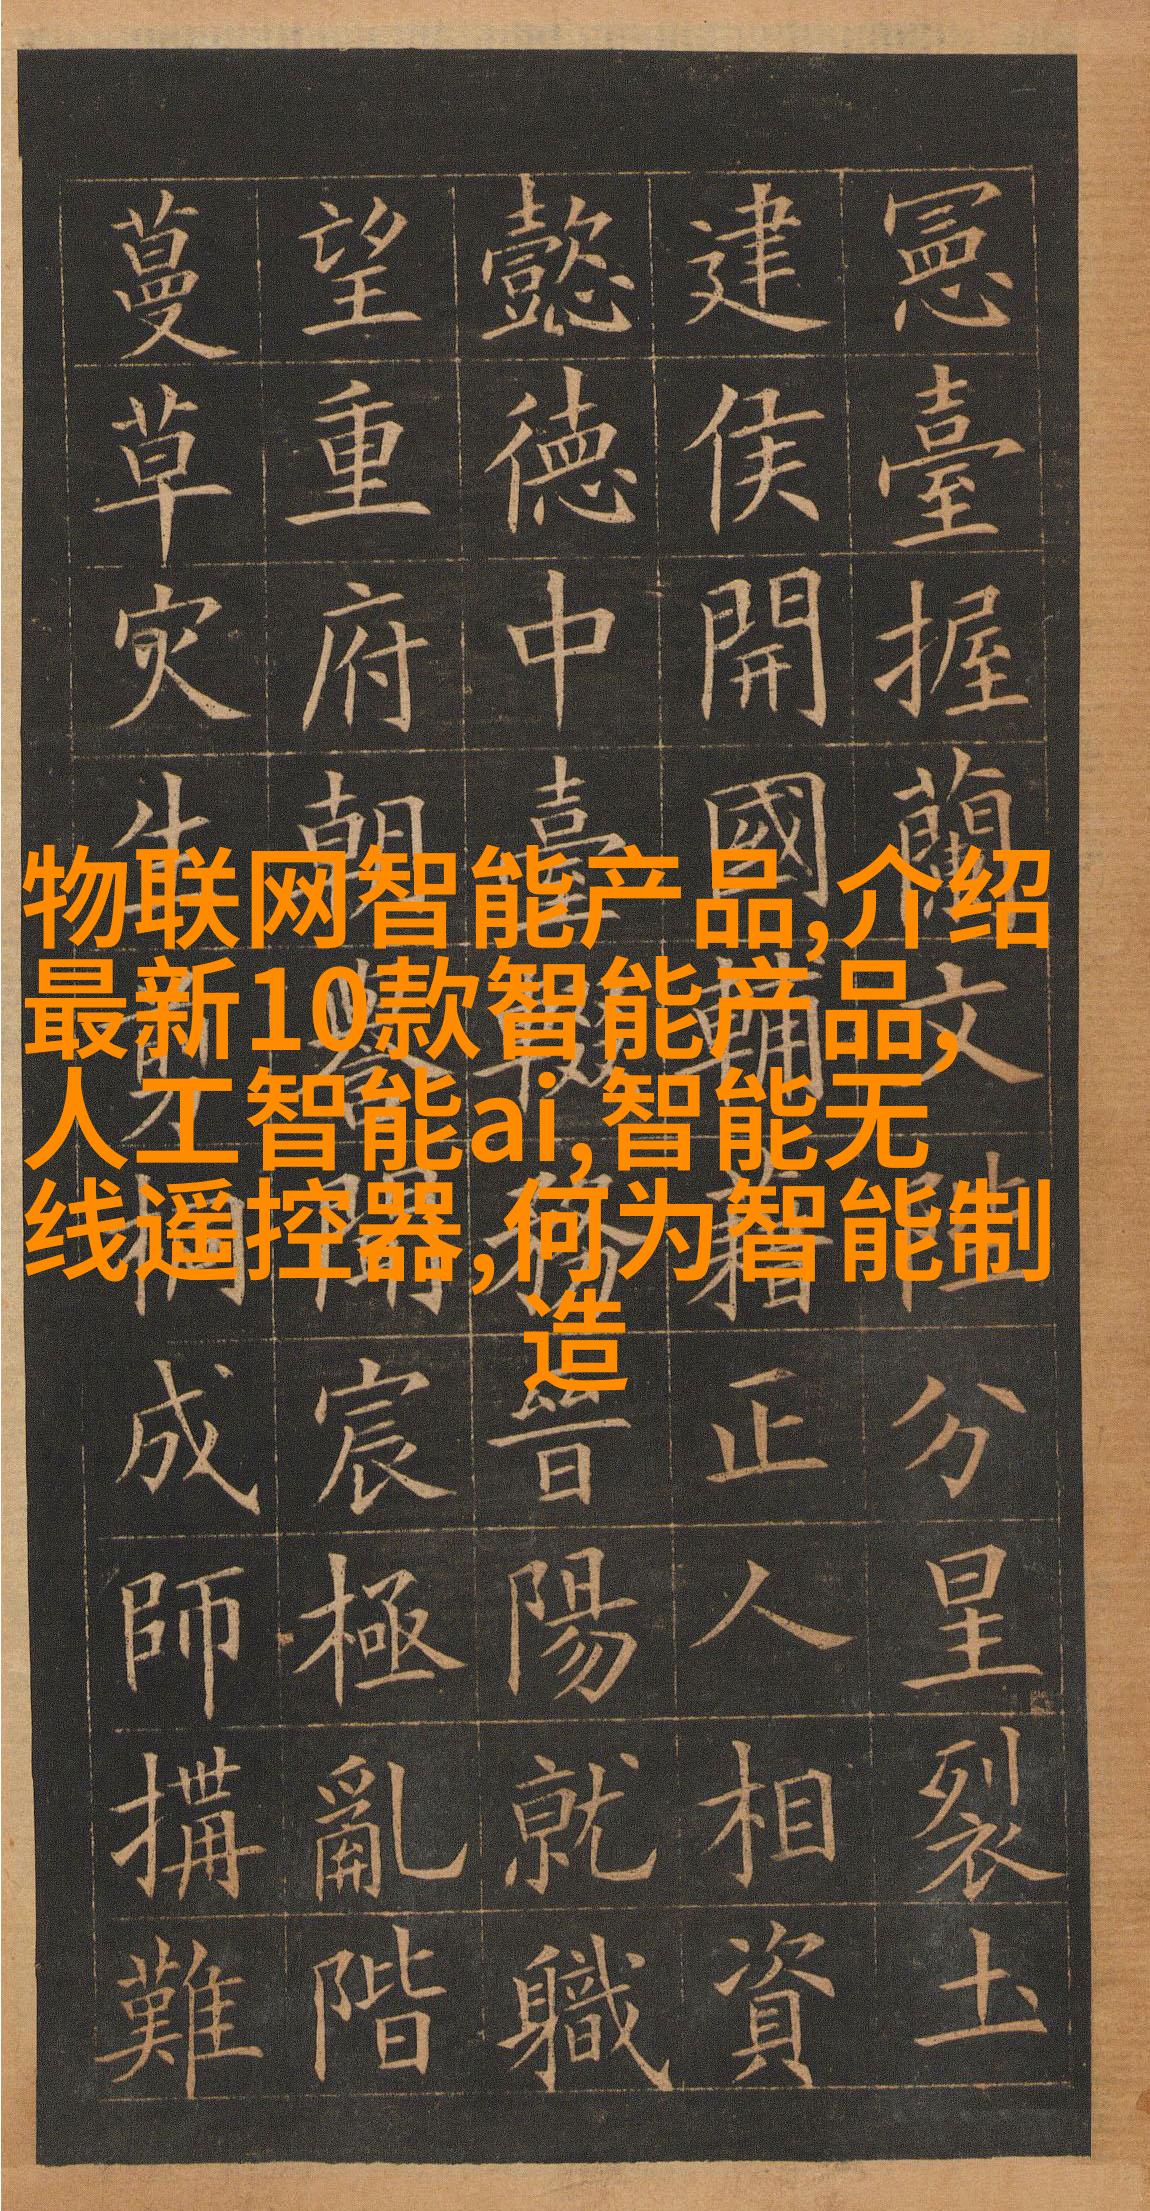 物联网智能产品,介绍
最新10款智能产品,
人工智能ai,智能无
线遥控器,何为智能制
造
憲臺握蘭文陛分星裂土
建侯開國輔藉正人相資
懿德中臺務晉陽就職
望重府朝譽聞宸極亂階
蔓草灾生桐成師搆難